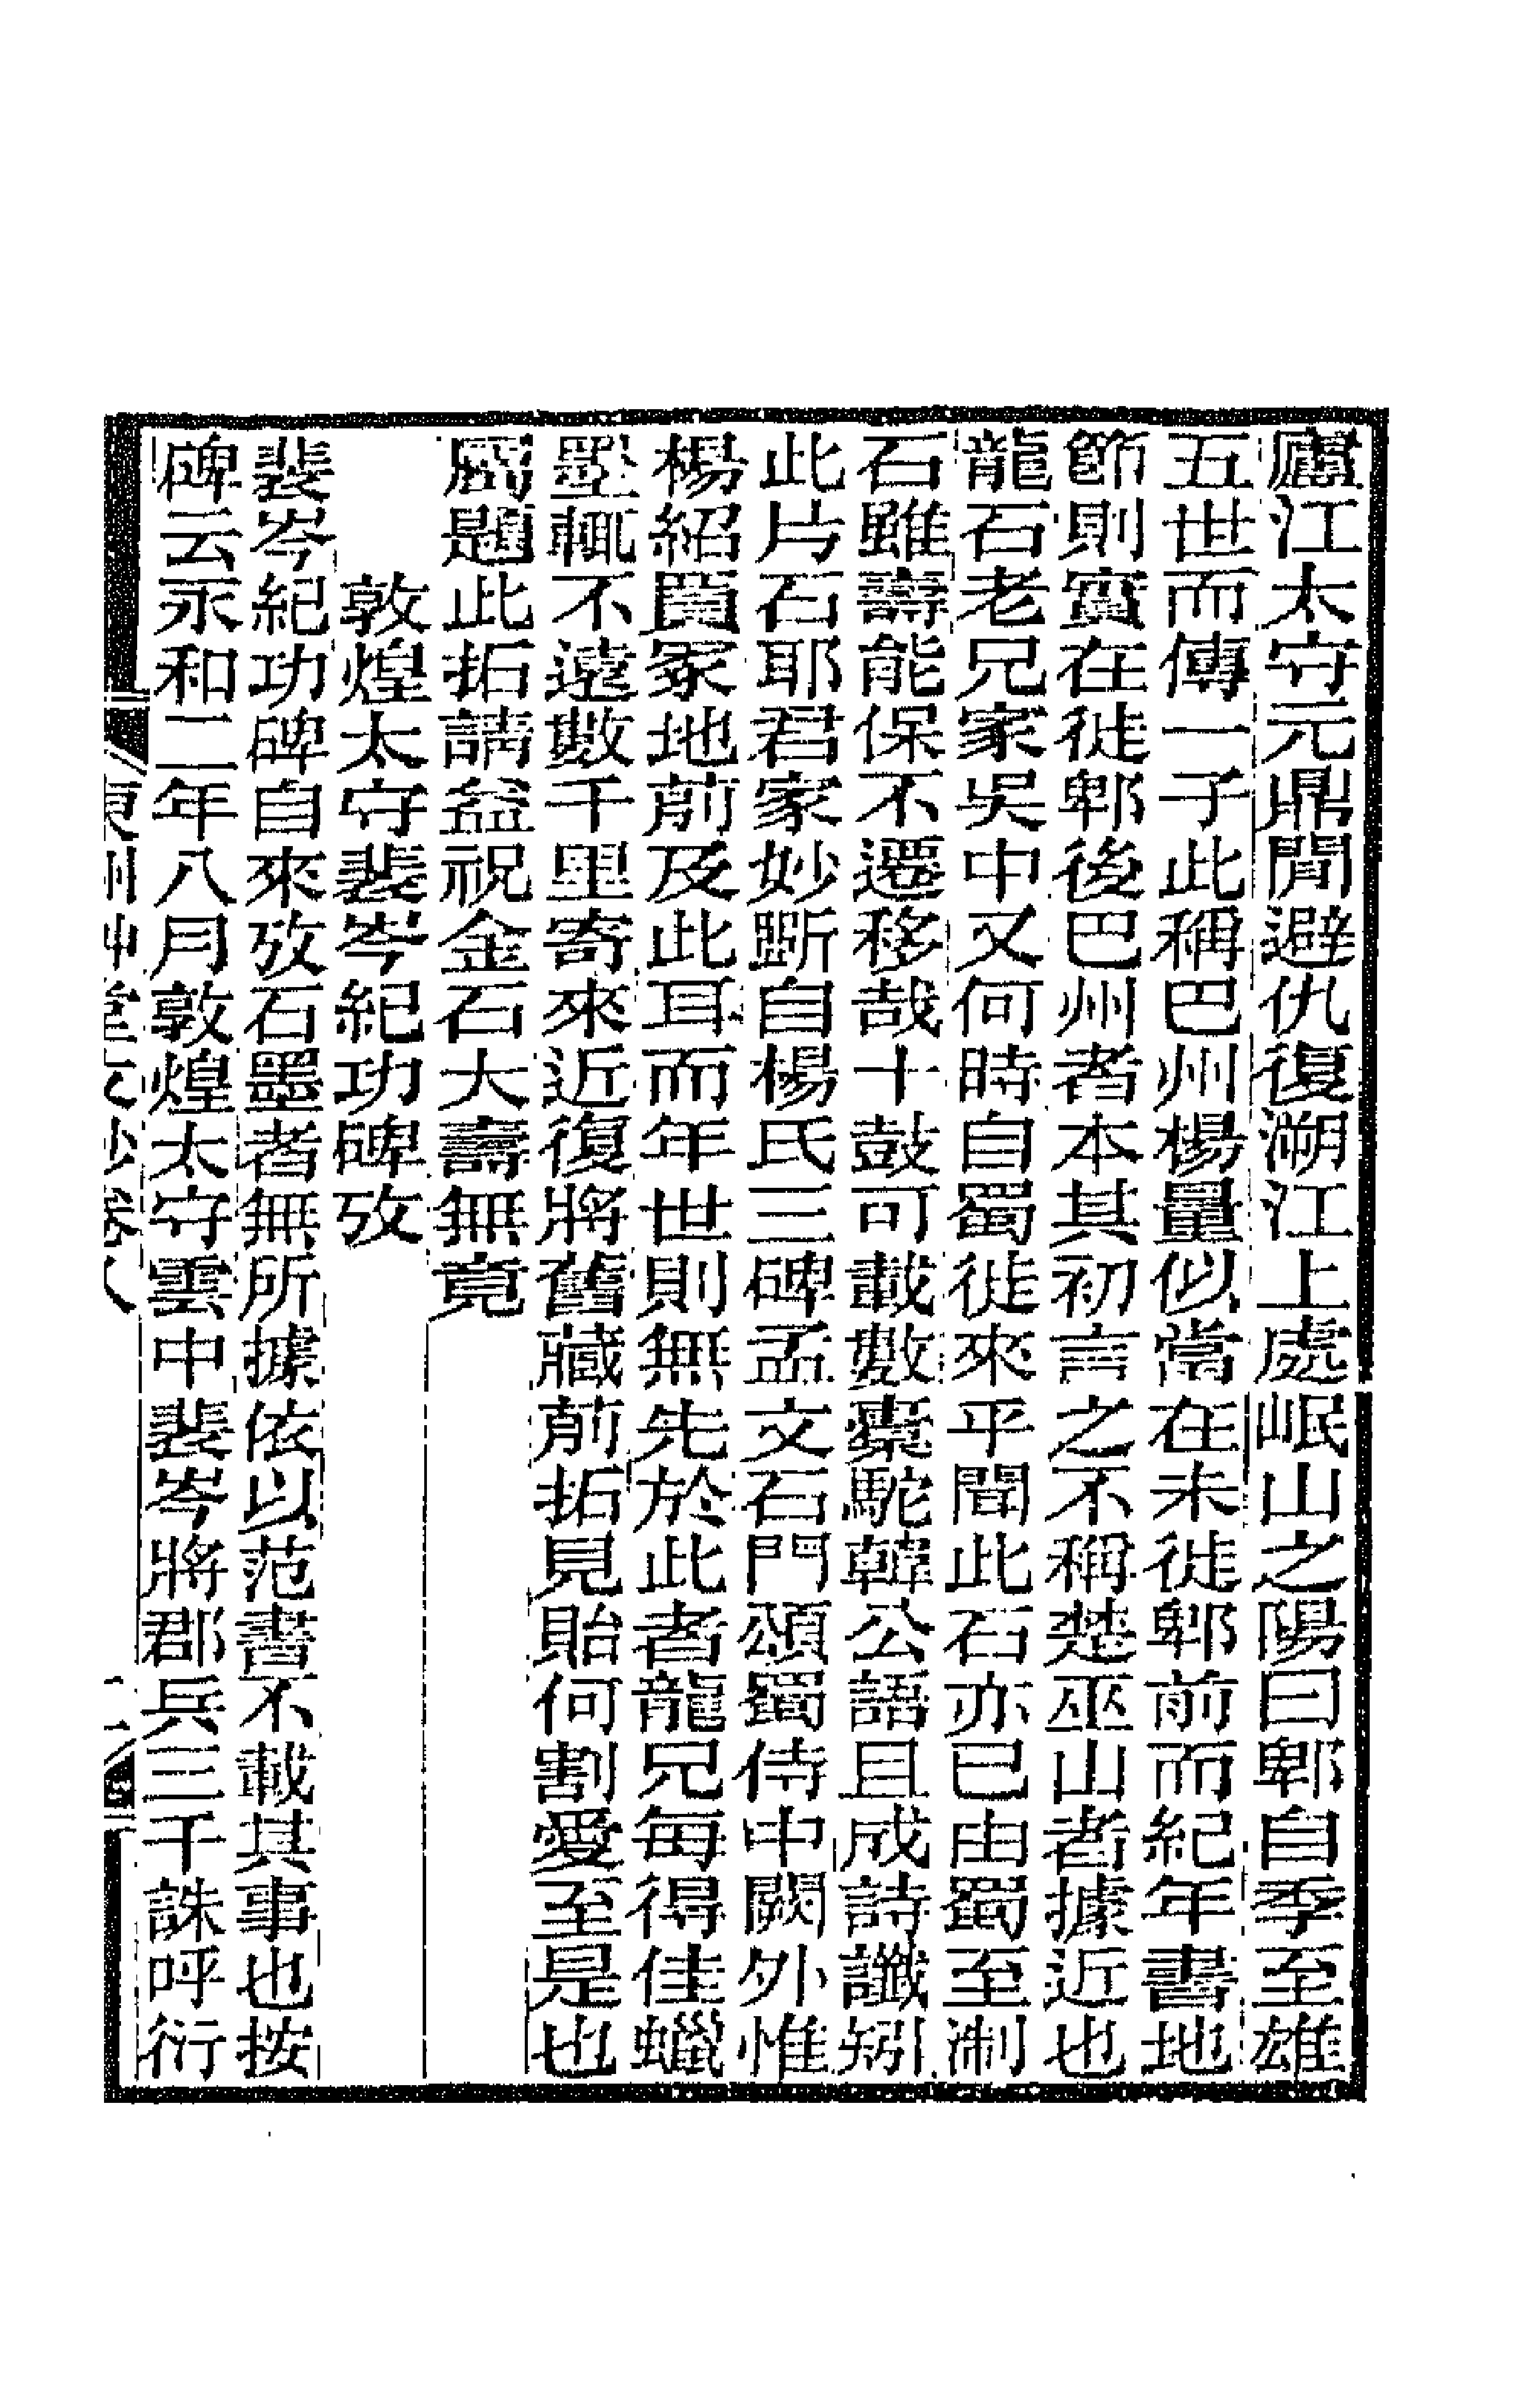 廬江太守元鼎閒避仇復溯江上處岷山之陽曰郫自季至雄
五世而傳一子此稱巴州楊量似當在未徙郫前而紀年書地
節則實在徙郫後巴州者本其初言之不稱楚巫山者據近也
龍石老兄家吳中又何時自蜀徙來平聞此石亦已由蜀至淛
石雖壽能保不遷移哉十鼓可載數橐駝韓公語且成詩讖矧
此片石耶君家妙斷自楊氏三碑孟文石門頌蜀侍中闕外惟
楊紹買冢地莂及此耳而年世則無先於此者龍兄每得佳蠟
墨輒不遠數千里寄來近復將舊藏前拓見貽何割愛至是也
屬題此拓請益祝金石大壽無竟
敦煌太守裴岑紀功碑攷
裴岑紀功碑自來攷石墨者無所據依以范書不載其事也按
碑云永和二年八月敦煌太守雲中裴岑將郡兵三千誅呼衍
東洲艸堂文鈔卷八